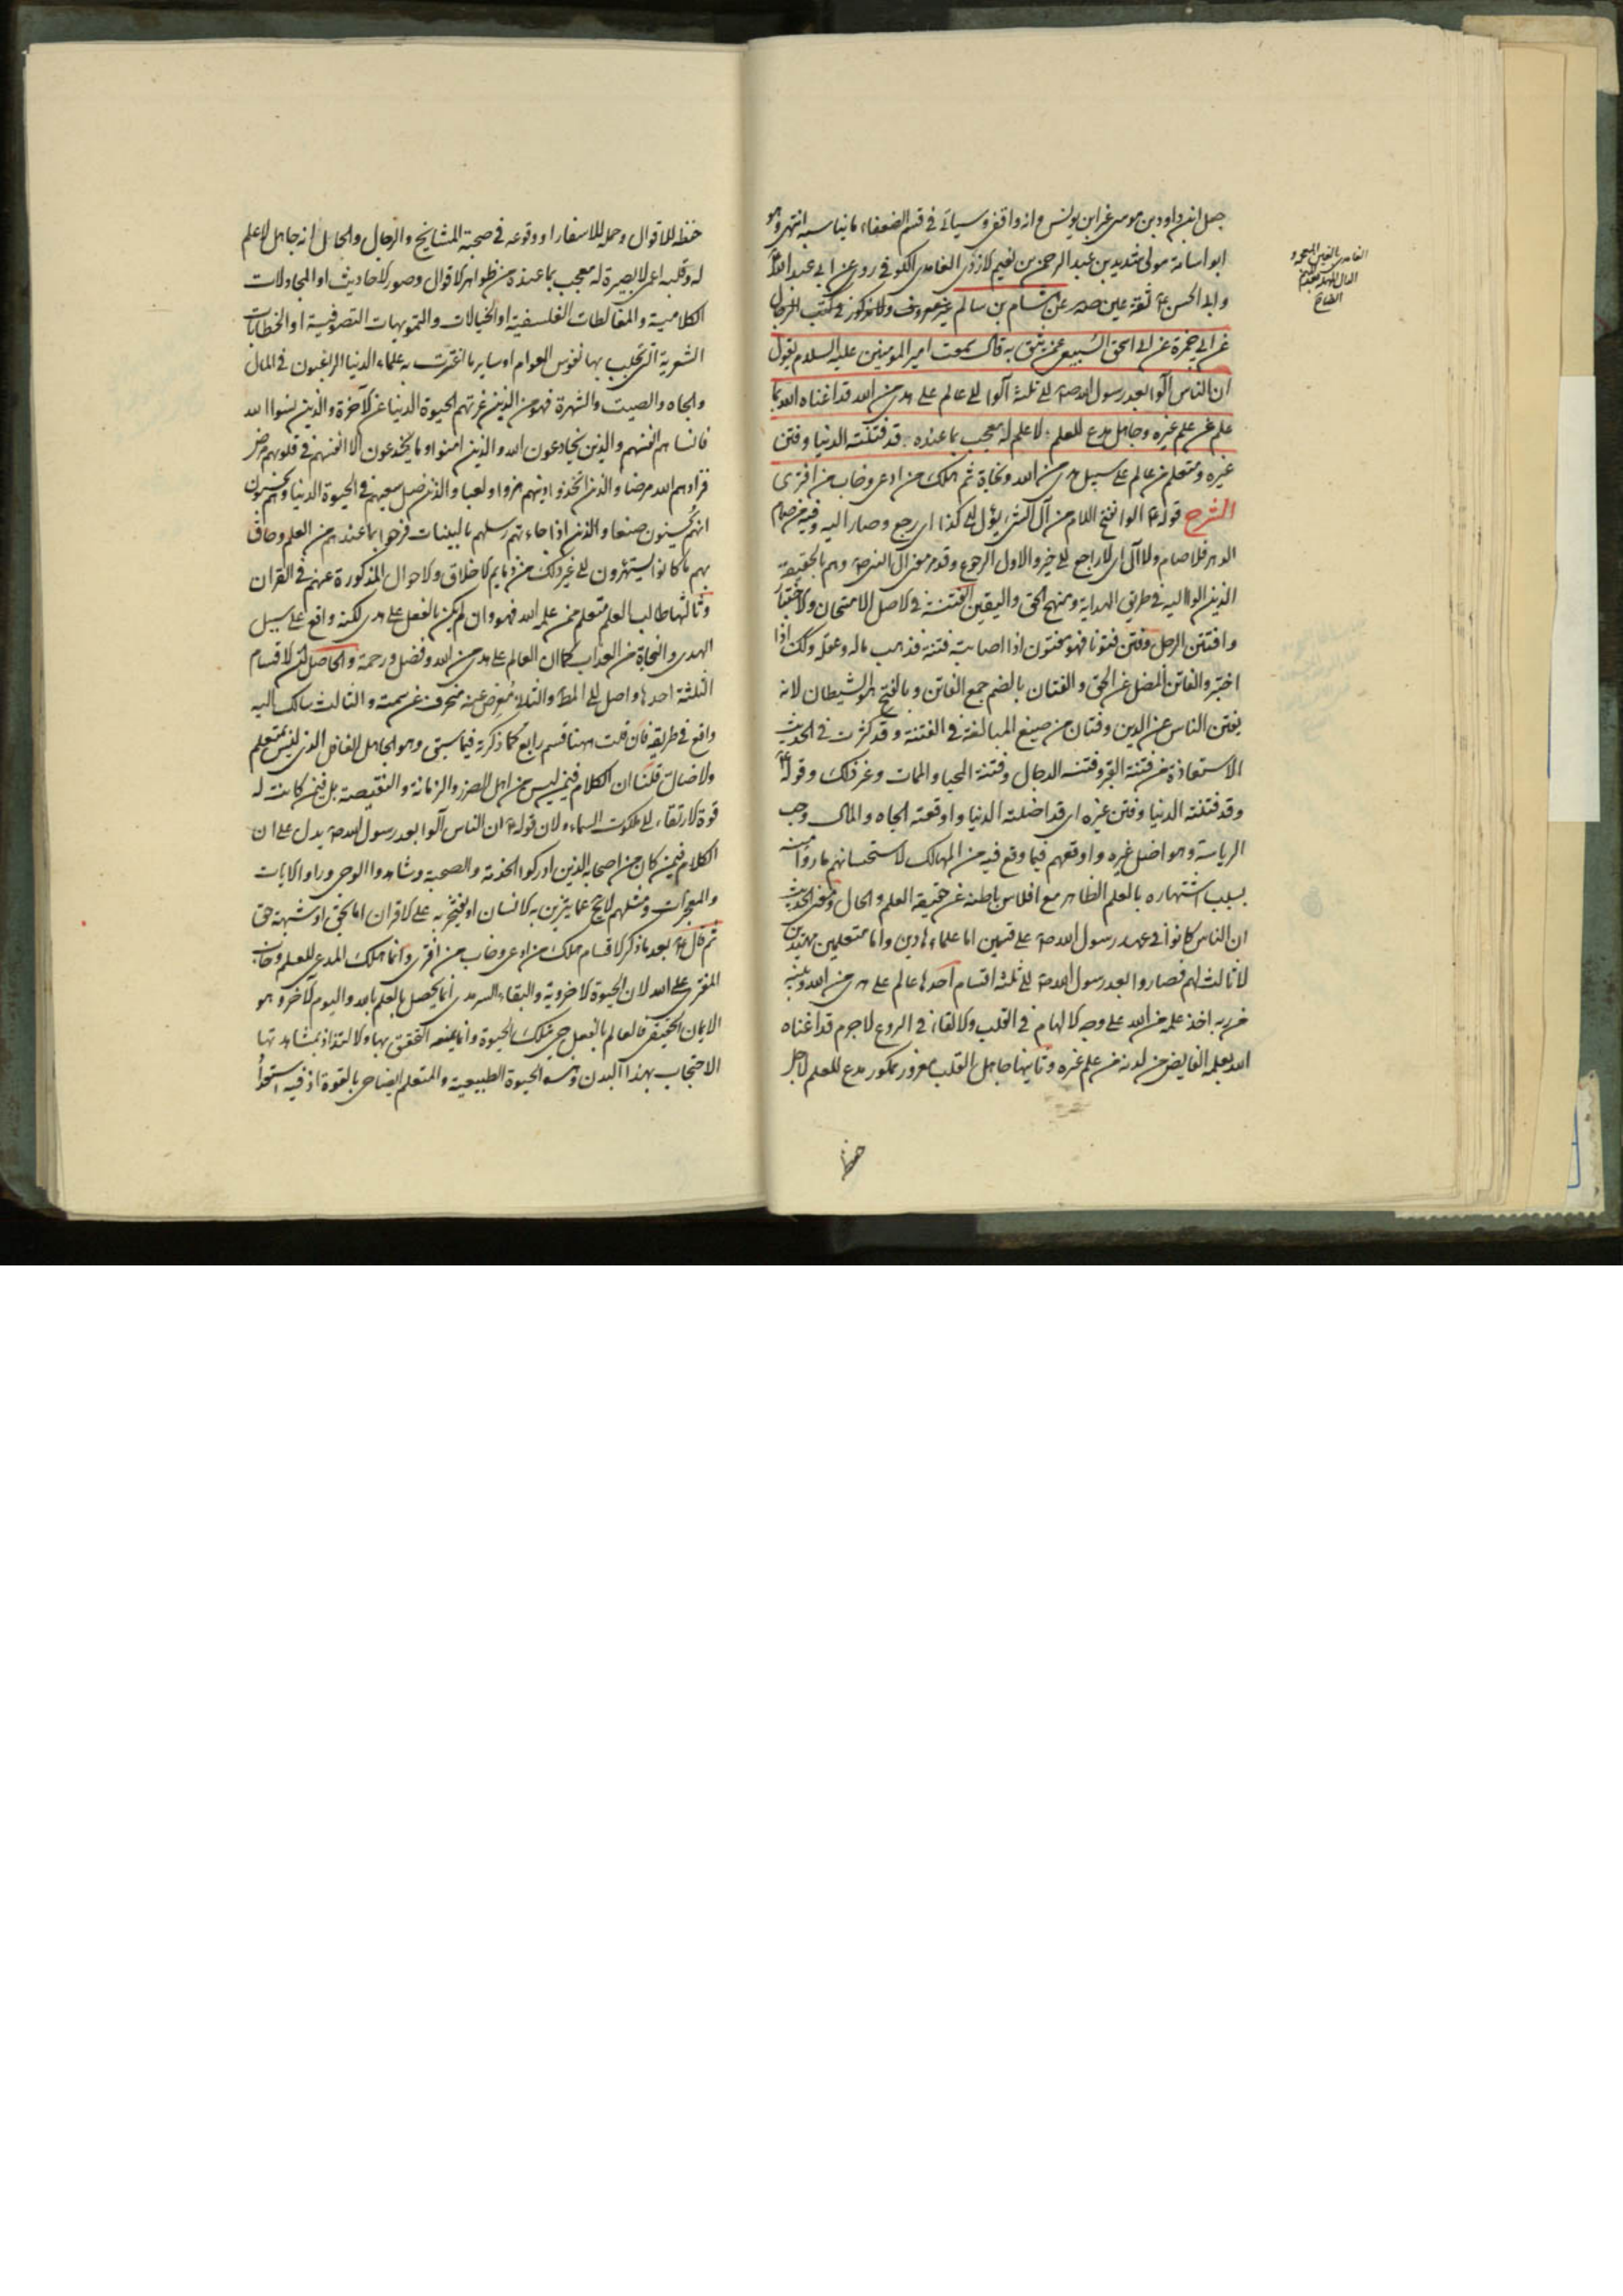 جعل ابن داود بن موسى غير ابن يونس وانه واقفي وسيأتي في قسم الضعفاء ما يناسبه انتهى وهو
ابو اسامة مولى شديد بن عبد الرحمن بن نعيم الازدي الغامدي الكوفي روى عن ابي عبد الله ع
وابي الحسن ع ثقة عين صه عن هشام بن سالم غير معروف ولا مذكور في كتب الرجال
عن ابي حمزة عن ابي اسحق السبيعي عمن يثق به قال سمعت امير المؤمنين عليه السلام يقول
ان الناس آلوا بعد رسول الله ص الى ثلثة آلوا الى عالم على هدى من الله قد اغناه الله بما
علم عن علم غيره وجاهل مدع للعلم لا علم له معجب بما عنده قد فتنته الدنيا وفتن
غيره ومتعلم من عالم على سبيل هدى من الله ونجاة ثم هلك من ادعى وخاب من افترى
الشرح قوله ع آلوا بفتح اللام من آل الشئ يؤل الى كذا اي رجع وصار اليه وفيه من صام
الدهر فلا صام ولا آل اي لا رجع الى خير والاول الرجوع وقد مر معنى آل النبي ص وهم بالحقيقة
الذين آلوا اليه في طريق الهداية ومنهج الحق واليقين الفتنة في الاصل الامتحان والاختبار
وافتتن الرجل وفتن فتونا فهو مفتون اذا اصابته فتنة فذهب ماله وعقله وكذلك اذا
اختبر والفاتن المضل عن الحق والفتان بالضم جمع الفاتن وبالفتح هو الشيطان لانه
يفتن الناس عن الدين وفتان من صيغ المبالغة في الفتنة وقد كثرت في الحديث
الاستعاذة من فتنة القبر وفتنة الدجال وفتنة المحيا والممات وغير ذلك وقوله ع
وقد فتنته الدنيا وفتن غيره اي قد اضلته الدنيا واوقعته الجاه والمال وحب
الرياسة وهو اضل غيره واوقعهم فيما وقع فيه من المهالك لاستحسانهم ما راوا منه
بسبب اشتهاره بالعلم الظاهر مع افلاس باطنه عن حقيقة العلم والحال ومعنى الحديث
ان الناس كانوا في عهد رسول الله ص على قسمين اما علماء هادين واما متعلمين مهتدين
لا ثالث لهم فصاروا بعد رسول الله ص الى ثلثة اقسام احدها عالم على هدى من الله وبينة
من ربه اخذ علمه من الله على وجه الالهام في القلب والالقاء في الروع لا جرم قد اغناه
الله بعلمه الفايض من لدنه عن علم غيره وثانيها جاهل القلب مغرور ممكور مدع للعلم لاجل
حفظ
الغامدي بالغين المعجمة و
الدال المهملة بعد الميم
حفظه للاقوال وحمله للاسفار او وقوعه في صحبة المشايخ والرجال والحال انه جاهل لا علم
له وقلبه اعمى لا بصيرة له معجب بما عنده من ظواهر الاقوال وصور الاحاديث او المجادلات
الكلامية والمغالطات الفلسفية او الخيالات والتمويهات التصوفية او الخطابات
الشعرية التي تجلب بها نفوس العوام او ساير ما اغترت به علماء الدنيا الراغبون في المال
والجاه والصيت والشهرة فهو من الذين غرتهم الحيوة الدنيا عن الاخرة والذين نسوا الله
فانساهم انفسهم والذين يخادعون الله والذين امنوا وما يخدعون الا انفسهم في قلوبهم مرض
فزادهم الله مرضا والذين اتخذوا دينهم هزوا ولعبا والذين ضل سعيهم في الحيوة الدنيا وهم يحسبون
انهم يحسنون صنعا والذين اذا جاءتهم رسلهم بالبينات فرحوا بما عندهم من العلم وحاق
بهم ما كانوا يستهزؤن الى غير ذلك من ذمايم الاخلاق والاحوال المذكورة عنهم في القران
وثالثها طالب العلم متعلم ممن علمه الله فهو وان لم يكن بالفعل على هدى لكنه واقع على سبيل
الهدى والنجاة من العذاب كما ان العالم على هدى من الله وفضل ورحمة والحاصل ان الاقسام
الثلثة احدها واصل الى المط والثاني معرض عنه منحرف عن سمته والثالث سالك اليه
واقع في طريقه فان قلت ههنا قسم رابع كما ذكرته فيما سبق وهو الجاهل الغافل الذي ليس بمتعلم
ولا ضال قلنا ان الكلام فيمن ليس من اهل الضرر والزمانة والنقيصة بل فيمن كانت له
قوة الارتقاء الى ملكوت السماء ولان قوله ع ان الناس آلوا بعد رسول الله ص يدل على ان
الكلام فيمن كان من اصحابه الذين ادركوا الخدمة والصحبة وشاهدوا الوحي وراوا الايات
والمعجزات ومثلهم لا يخ عما يتزين به الانسان او يفتخر به على الاقران اما بحق او شبهة حق
ثم قال ع بعد ما ذكر الاقسام هلك من ادعى وخاب من افترى وانما هلك المدعي للعلم وخاب
المفتري على الله لان الحيوة الاخروية والبقاء السرمدي انما يحصل بالعلم بالله واليوم الاخر وهو
الايمان الحقيقي فالعالم بالفعل حي بتلك الحيوة وانما يمنعه التحقق بها والالتذاذ بمشاهدتها
الاحتجاب بهذا البدن وهذه الحيوة الطبيعية والمتعلم ايضا حي بالقوة اذ فيه استعداد